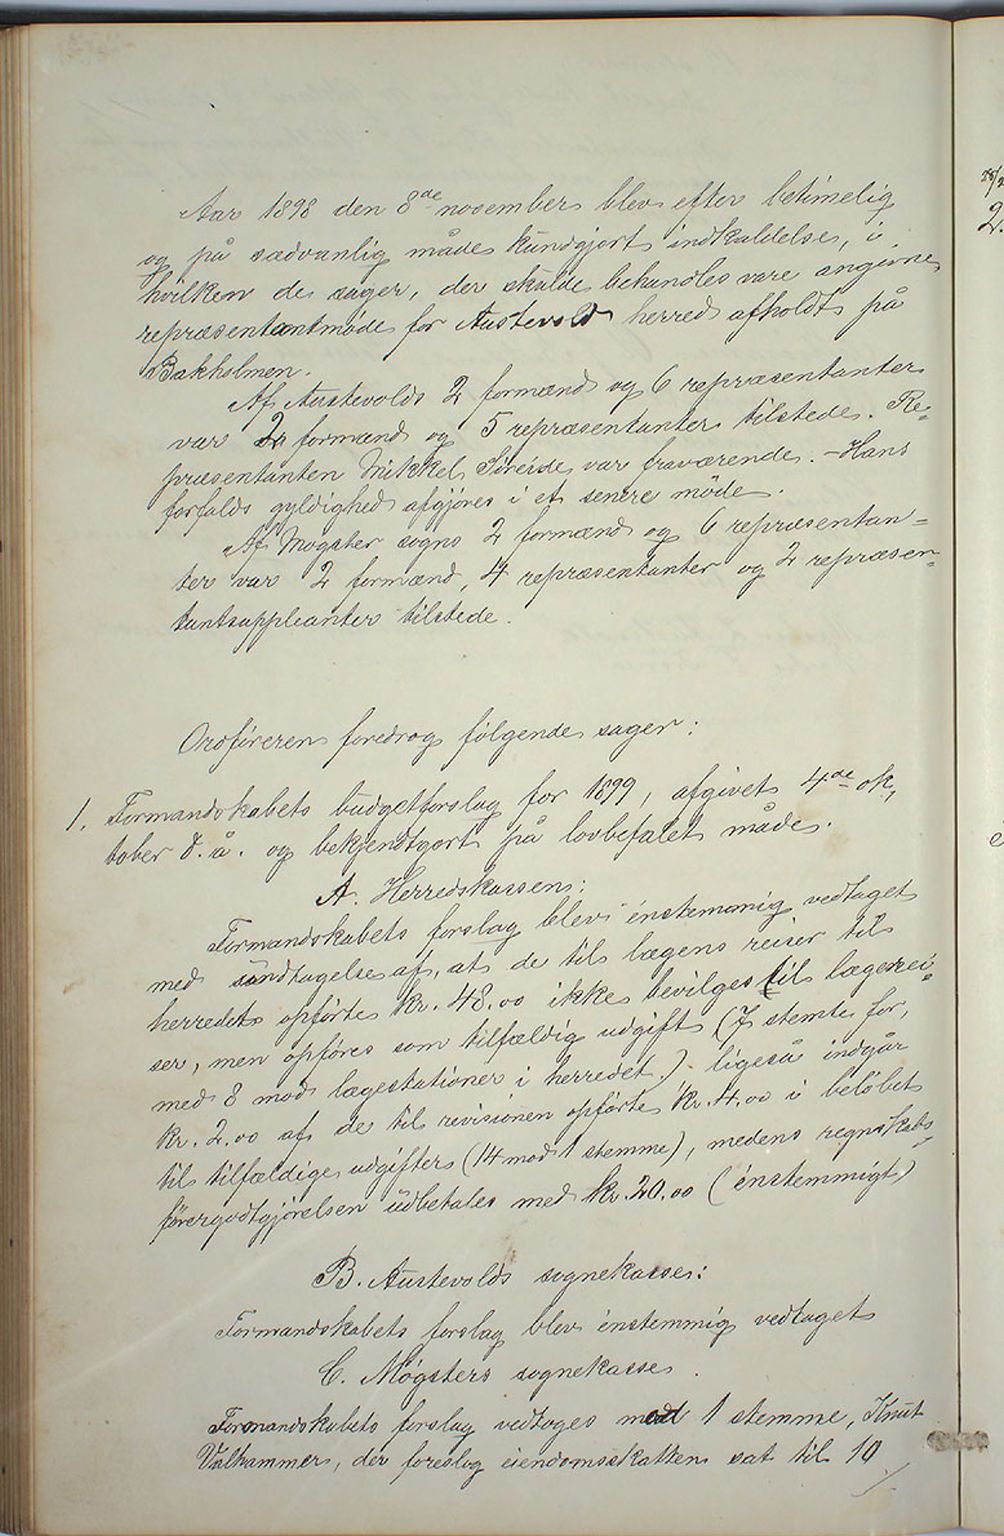 Aar 1898 den 8de november blev efter betimelig
og på sædvanlig måde kundgjort indkaldelse, i
hvilken de sager, der skulde behandles vare angivne
repræsentantmøde for Austevold herred afholdt på
Bakholmen.
Af Austevolds 2 formænd og 6 repræsentanter
var 2 formænd og 5 repræsentanter tilstede. Re-
præsentanten Mikkel var fraværende. - Hans
forfalds gyldighed afgjøres i et senere møde.
Af Møgster sogns 2 formænd og 6 repræsentan-
ter var 2 formænd, 4 repræsentanter og 2 repræsen-
tantsuppleanter tilstede.
Ordføreren foredrog følgende sager:
1. Formandskabets budgetforslag for 1899, afgivet 4de ok-
tober d. å. og bekjendtgjort på lovbefalet måde.
A. Herredskassen:
Formandskabets forslag blev énstemmig vedtaget
med undtagelse af, at de til lægens reiser til
herredet opførte kr. 48.00 ikke bevilges til lægerei-
ser, men opføres som tilfældig udgift (7 stemte for,
med 8 mod lægestationer i herredet.) ligeså indgår
kr. 2.00 af de til revisionen opførte kr. 4.00 i beløbet
til tilfældige udgifter (14 mod 1 stemme), medens regnskabs-
førergodtgjørelsen udbetales med kr. 20.00 (énstemmigt)
B. Austevolds sognekasse:
Formandskabets forslag blev énstemmig vedtaget
C. Møgsters sognekasse.
Formandskabets forslag vedtoges mod 1 stemme, Knut
Valhammer, der foreslog eiendomsskatten sat til 10